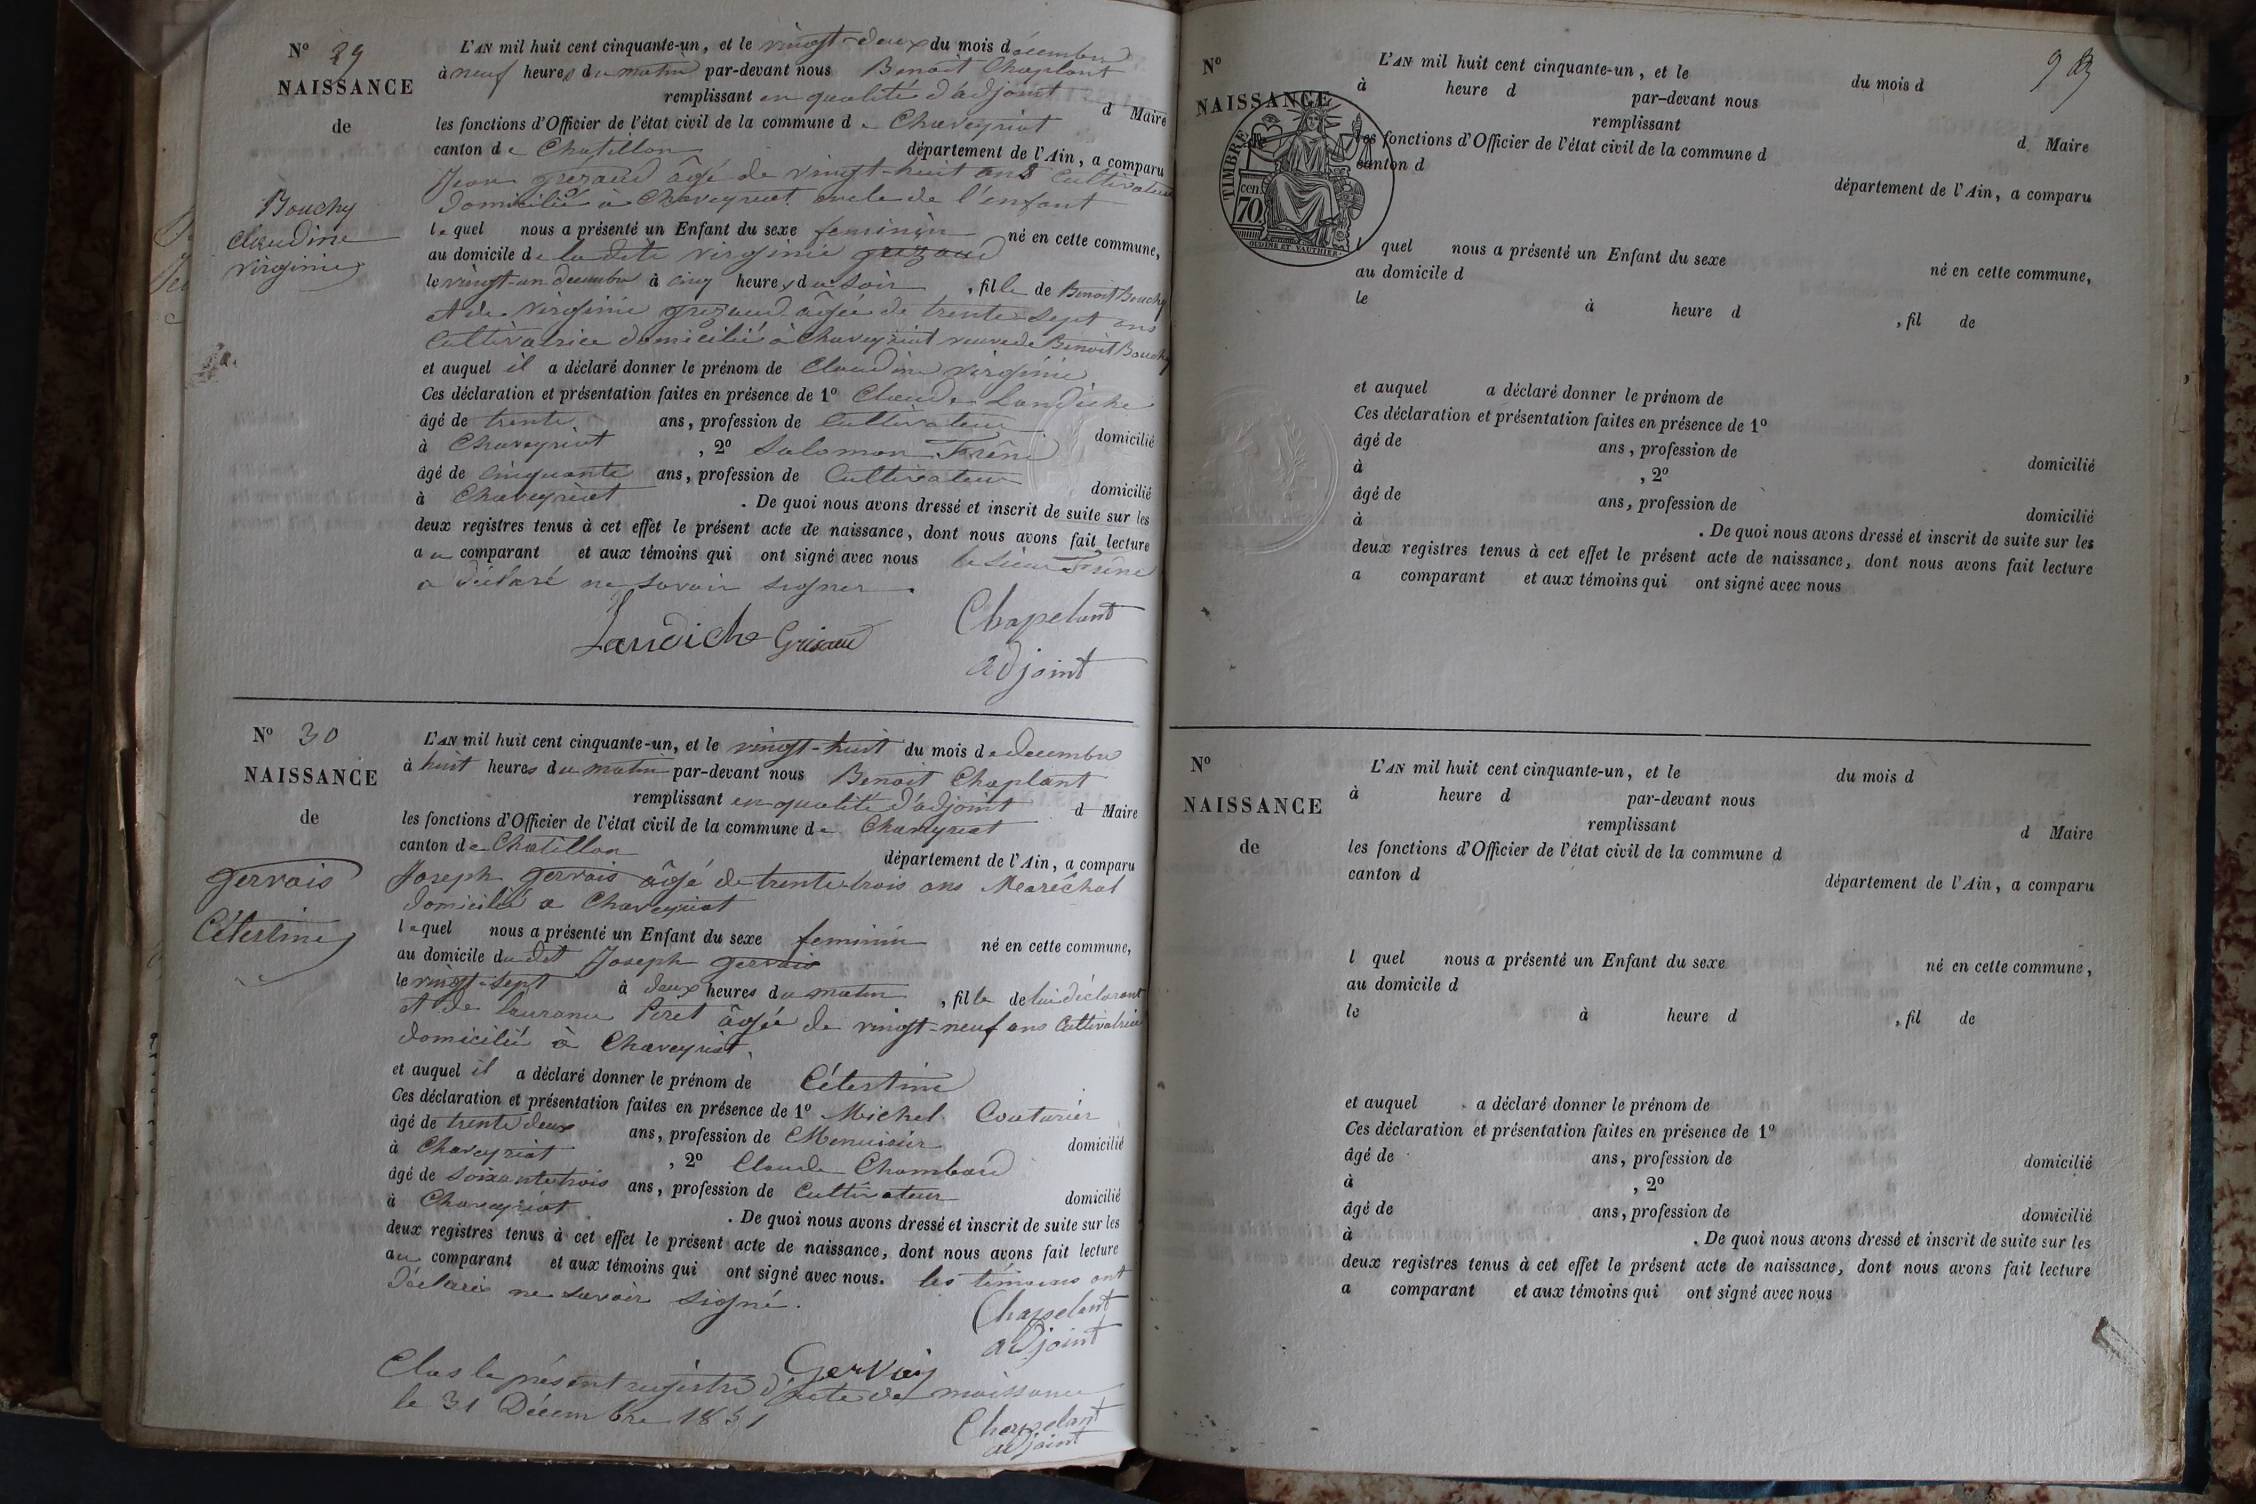 N° 29
NAISSANCE
de
Bouchy
Claudine
Virginie
L'AN mil huit cent cinquante-un, et le vingt-deux du mois décembre
à neuf heures du matin par-devant nous Benoit Chaplant
remplissant en qualité d'adjoint d Maire
les fonctions d'Officier de l'état civil de la commune de Chaveyriat
canton de Chatillon département de l'Ain, a comparu
Jean grezaud âgé de vingt-huit ans Cultivateur
domicilié à Chaveyriat oncle de l'enfant
lequel nous a présenté un Enfant du sexe feminin né en cette commune,
au domicile de la dite virginie grezaud
le vingt-un decembre à cinq heures du soir, fille de Benoit Bouchy
et de virginie grezaud âgée de trente-sept ans
Cultivatrice domiciliée à Chaveyriat veuve de Benoit Bouchy
et auquel il a déclaré donner le prénom de Claudine virginie
Ces déclaration et présentation faites en présence de 1° Claude Landiche
âgé de trente ans, profession de Cultivateur domicilié
à Chaveyriat, 2° Salomon Frêne
âgé de cinquante ans, profession de Cultivateur domicilié
à Chaveyriat. De quoi nous avons dressé et inscrit de suite sur les
deux registres tenus à cet effet le présent acte de naissance, dont nous avons fait lecture
au comparant et aux témoins qui ont signé avec nous le Sieur Frêne
a déclaré ne savoir signer.
Landiche Grisaud Chapelant
adjoint
N° 30
NAISSANCE
de
gervais
Célestine
L'AN mil huit cent cinquante-un, et le vingt-huit du mois de decembre
à huit heures du matin par-devant nous Benoit Chaplant
remplissant en qualité d'adjoint d Maire
les fonctions d'Officier de l'état civil de la commune de Chaveyriat
canton de Chatillon département de l'Ain, a comparu
Joseph gervais âgé de trente trois ans Maréchal
domicilié a Chaveyriat
lequel nous a présenté un Enfant du sexe feminin né en cette commune,
au domicile du dit Joseph gervais
le vingt-sept à deux heures du matin, fille de lui déclarant
et de Piret âgée de vingt-neuf ans Cultivatrice
domiciliée à Chaveyriat.
et auquel il a déclaré donner le prénom de Célestine
Ces déclaration et présentation faites en présence de 1° Michel Couturier
âgé de trente deux ans, profession de Menuisier domicilié
à Chaveyriat, 2° Claude Chambard
âgé de soixante trois ans, profession de Cultivateur domicilié
à Chaveyriat. De quoi nous avons dressé et inscrit de suite sur les
deux registres tenus à cet effet le présent acte de naissance, dont nous avons fait lecture
au comparant et aux témoins qui ont signé avec nous. les témoins ont
déclaré ne savoir signé.
Chapelant
adjoint
Gervais
Clos le présent registre d'acte de naissance
le 31 Décembre 1851
Chapelant
adjoint
N°
NAISSANCE
TIMBRE
70 cen
OUDINE ET VAUTHIER
L'AN mil huit cent cinquante-un, et le du mois d
à heure d par-devant nous
remplissant d Maire
les fonctions d'Officier de l'état civil de la commune d
canton d département de l'Ain, a comparu
l quel nous a présenté un Enfant du sexe né en cette commune,
au domicile d
le à heure d, fil de
et auquel a déclaré donner le prénom de
Ces déclaration et présentation faites en présence de 1°
âgé de ans, profession de domicilié
à, 2°
âgé de ans, profession de domicilié
à. De quoi nous avons dressé et inscrit de suite sur les
deux registres tenus à cet effet le présent acte de naissance, dont nous avons fait lecture
a comparant et aux témoins qui ont signé avec nous
N°
NAISSANCE
de
L'AN mil huit cent cinquante-un, et le du mois d
à heure d par-devant nous
remplissant d Maire
les fonctions d'Officier de l'état civil de la commune d
canton d département de l'Ain, a comparu
l quel nous a présenté un Enfant du sexe né en cette commune,
au domicile d
le à heure d, fil de
et auquel a déclaré donner le prénom de
Ces déclaration et présentation faites en présence de 1°
âgé de ans, profession de domicilié
à, 2°
âgé de ans, profession de domicilié
à. De quoi nous avons dressé et inscrit de suite sur les
deux registres tenus à cet effet le présent acte de naissance, dont nous avons fait lecture
a comparant et aux témoins qui ont signé avec nous